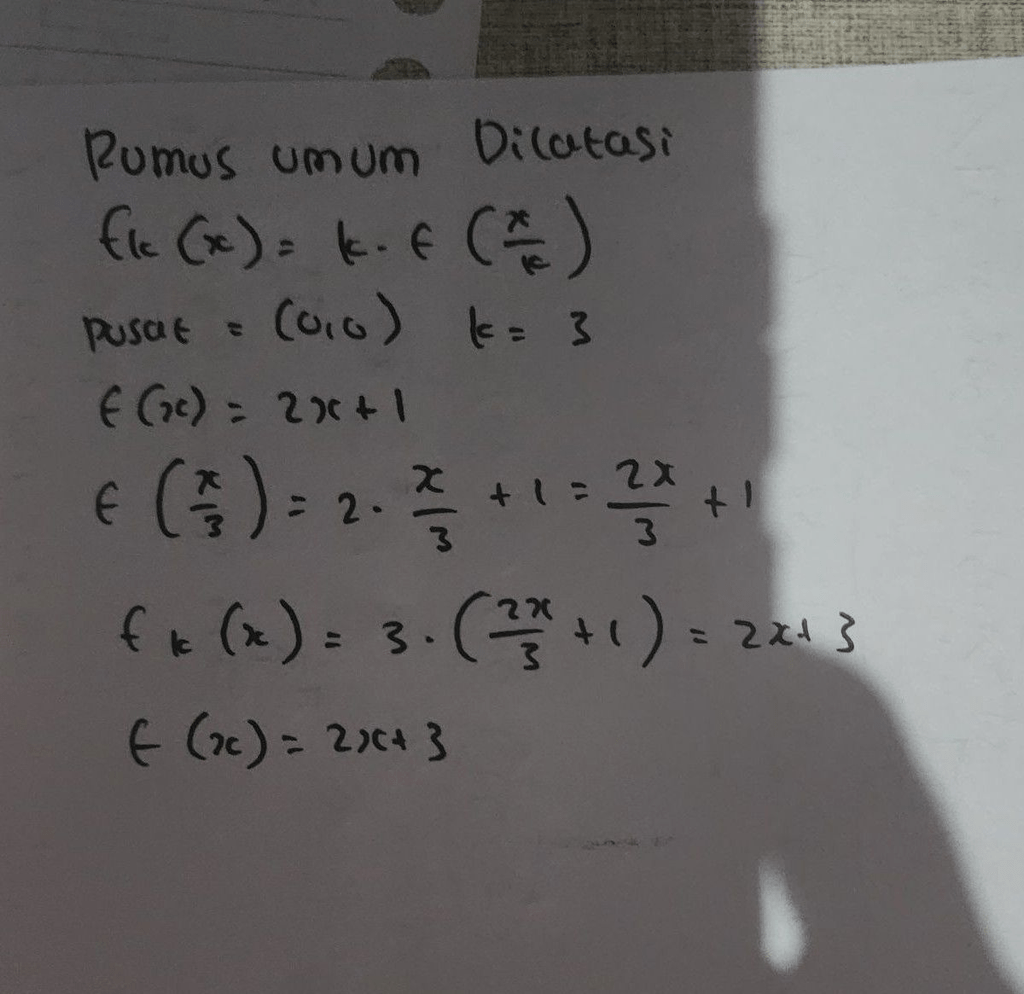 Rumus umum Dilatasi
fk (x) = k. f (x/k)
pusat = (0,0) k = 3
f (x) = 2x + 1
f (x/3) = 2. x/3 + 1 = 2x/3 + 1
f k (x) = 3. (2x/3 + 1) = 2x + 3
f (x) = 2x + 3